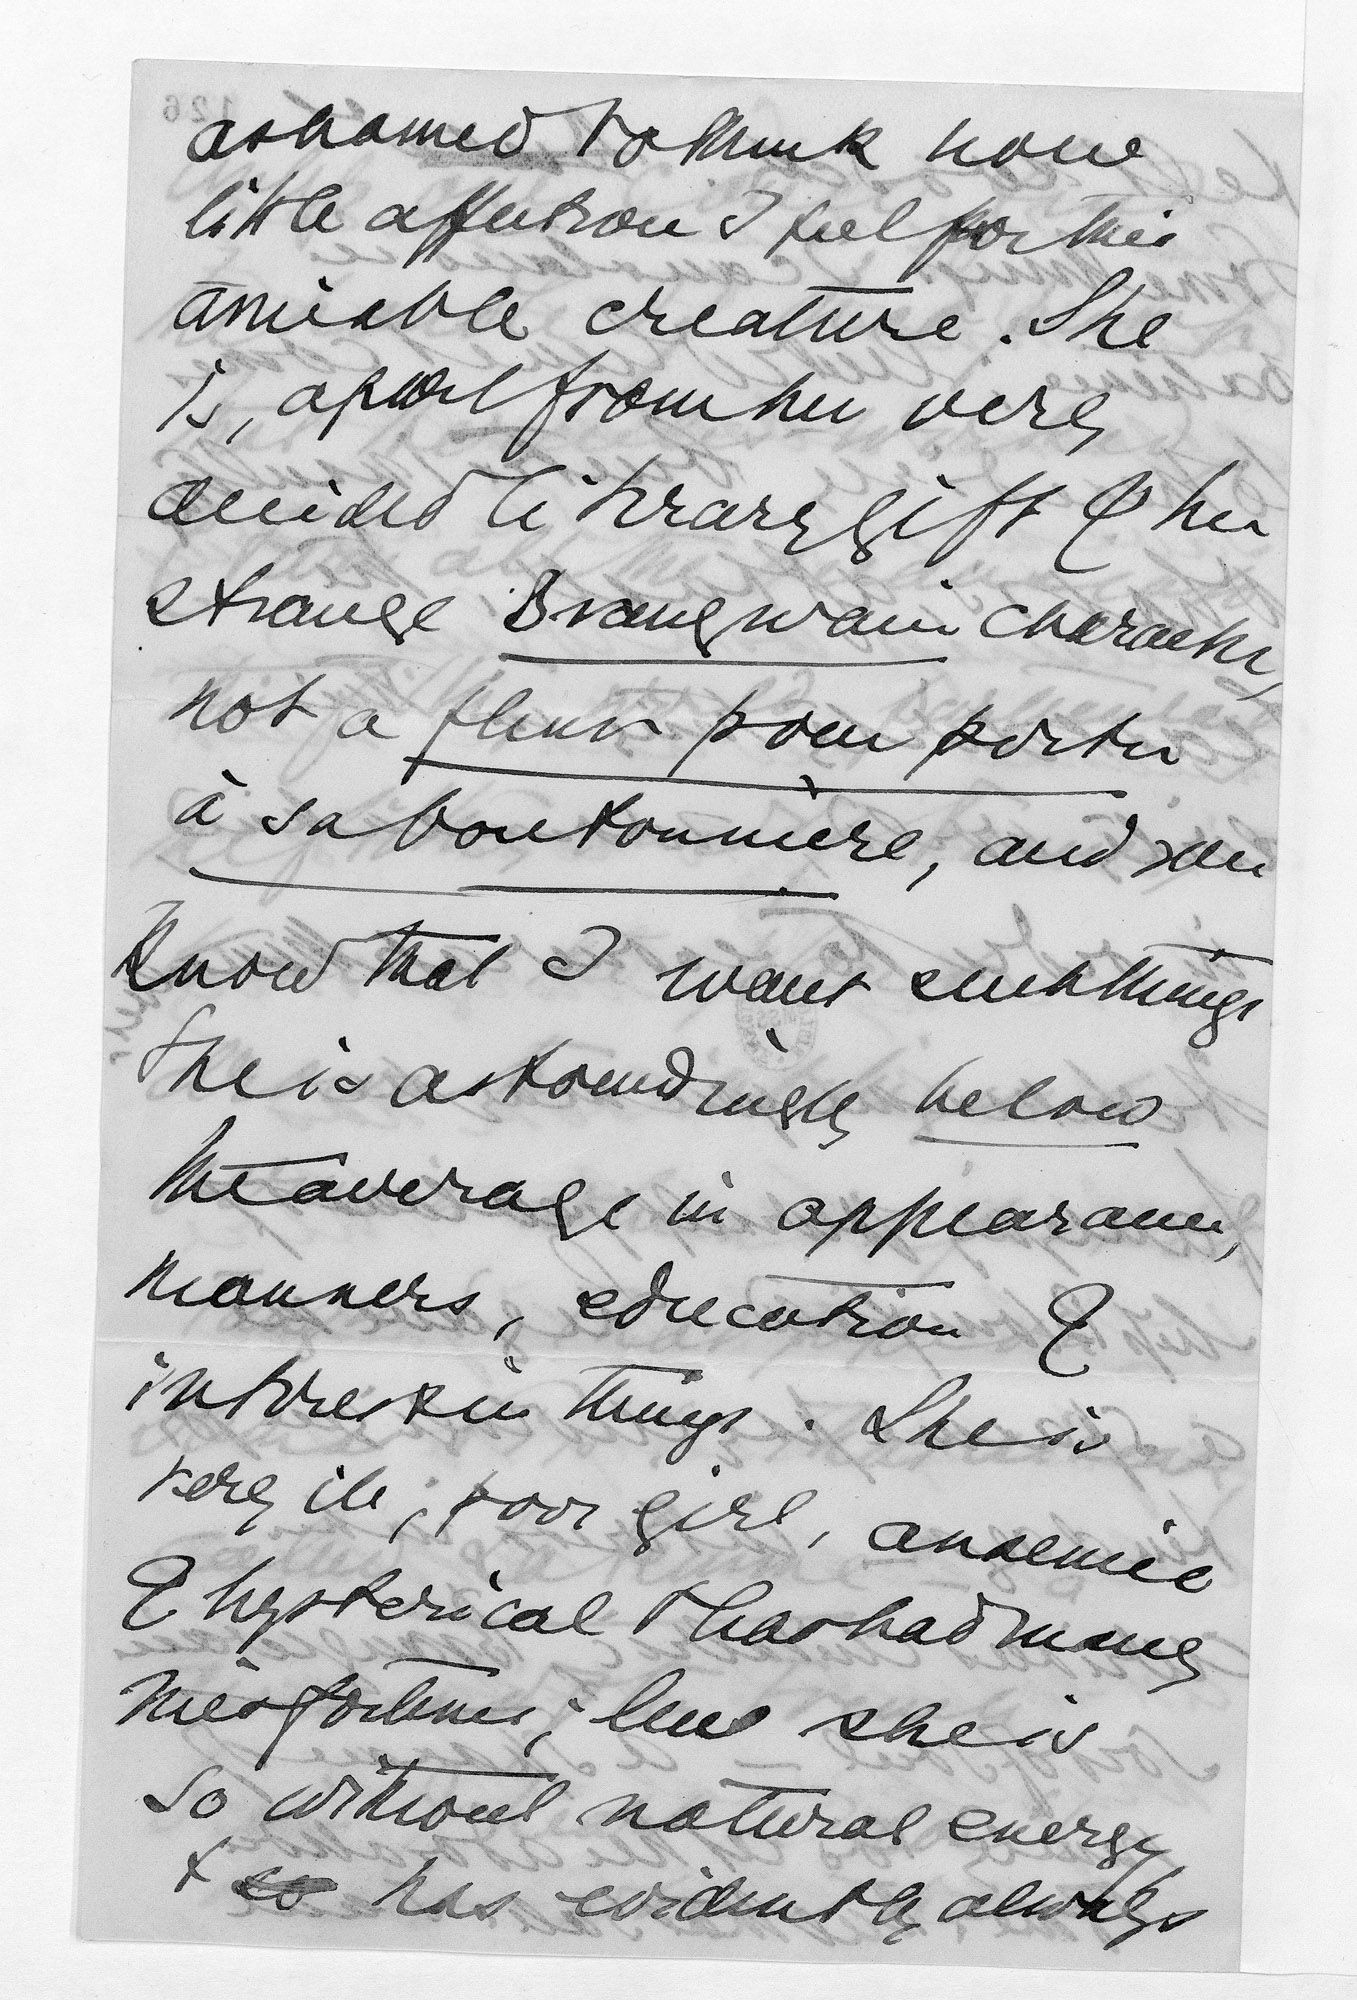 ashamed to think how
little affection I feel for this
amiable creature. She
is, apart from her very
decided literary gift & her
strange Brangwain character,
not a fleur pour porter
à sa boutonnière, and you
know that I want such things
She is astoundingly below
the average in appearance,
manners, education &
interest in things. She is
very ill, poor girl, anaemic
& hysterical & has had many
misfortunes; but she is
so without natural energy
& so has evidently always